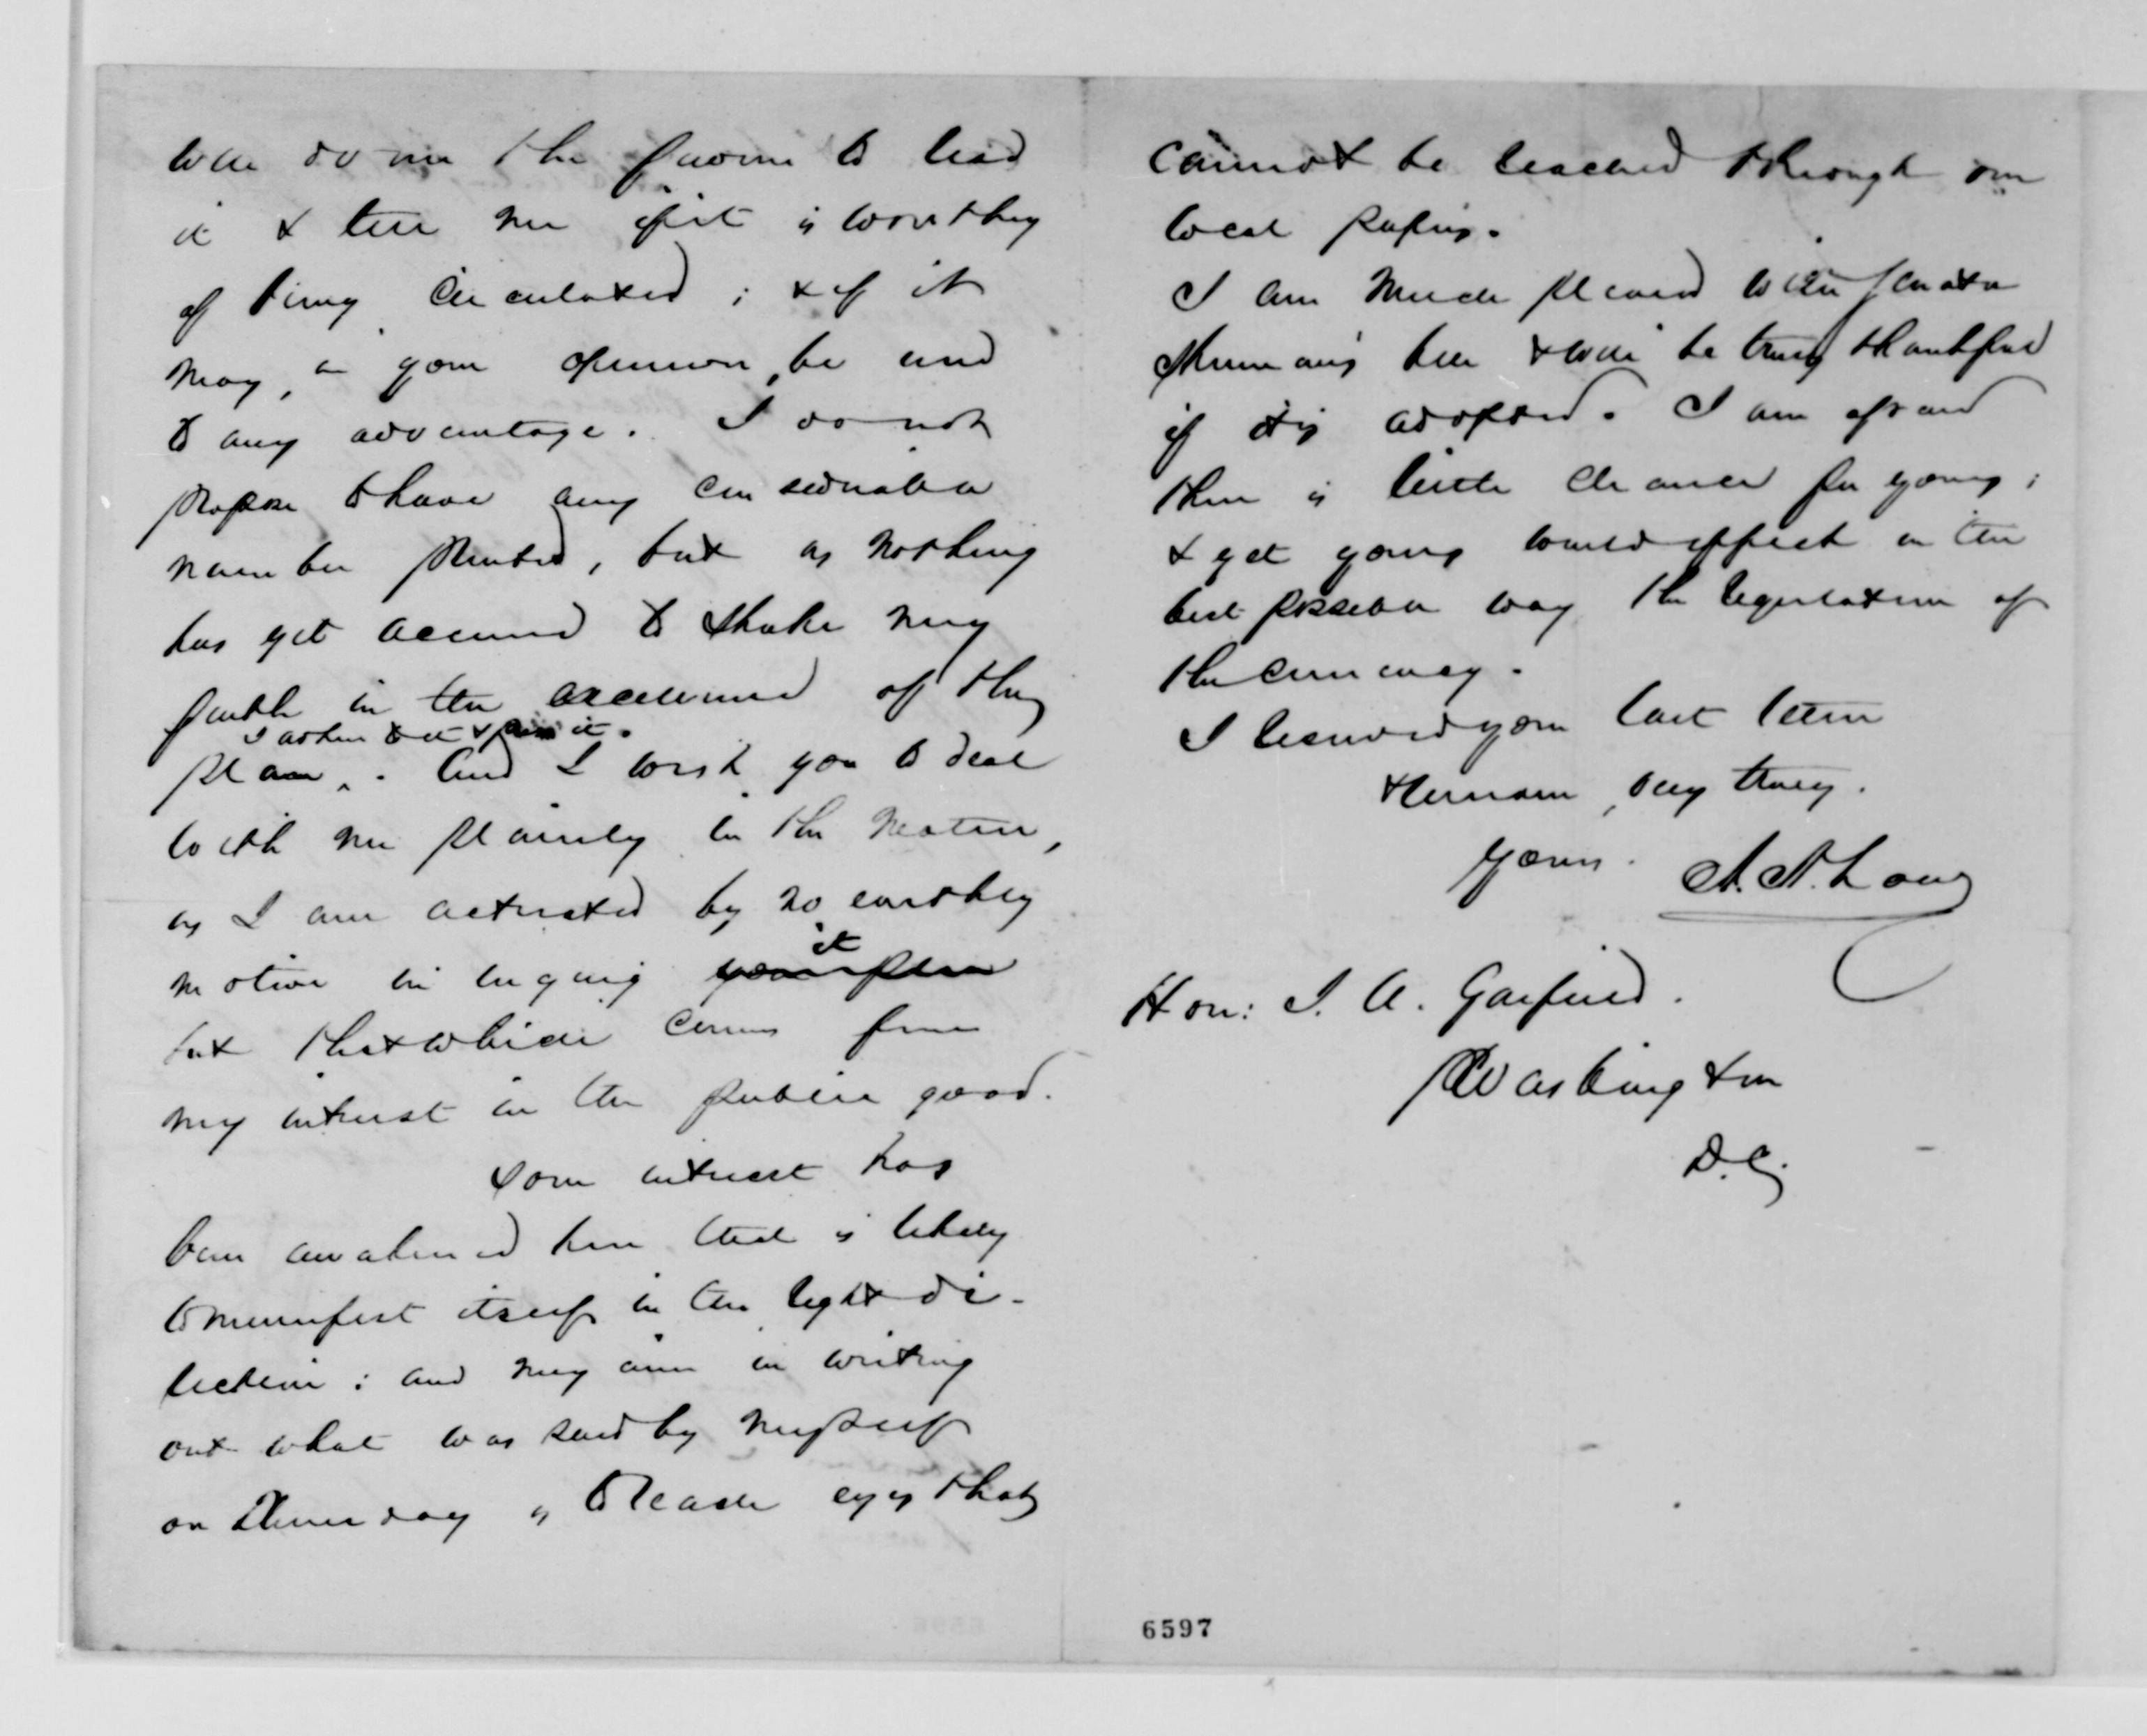 will do me the favour to read
it & tell me if it is worthy
of being circulated; & if it
may, in your opinion, be used
to any advantage. I do not
propose to have any considerable
number printed, but as nothing
has yet occurred to shake my
faith in the excellence of the
I adhere to it & it.
plan. And I wish you to deal
with me plainly in the matter,
as I am actuated by no earthly
it
motive in urging your plan
but that which comes from
my interest in the public good.
Some interest has
been awakened here that is likely
to manifest itself in the right di-
rection: and my aim in writing
out what was said by myself
on Thursday is to reach eyes that
cannot be reached through our
local papers.
I am much pleased with Senator
Sherman's bill & will be truly thankful
if it is adopted. I am afraid
there is little chance for yours;
& yet yours would effect in the
best possible way the regulation of
the currency.
I received your last letter
& remain, very truly.
Yours. A. A. Long
Hon: J. A. Garfield.
Washington
D.C.
6597